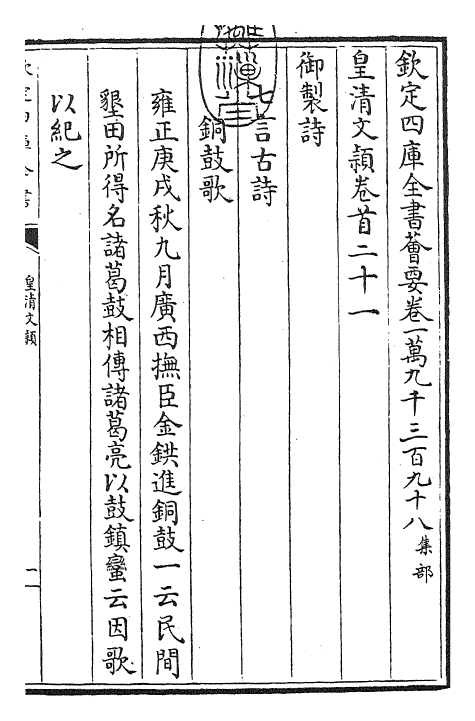 欽定四庫全書薈要卷一萬九千三百九十八 集部
皇清文穎卷首二十一
御製詩
七言古詩
銅鼓歌
雍正庚戌秋九月廣西撫臣金鉷進銅鼓一云民間
墾田所得名諸葛鼓相傳諸葛亮以鼓鎮蠻云因歌
以紀之
皇清文穎
一